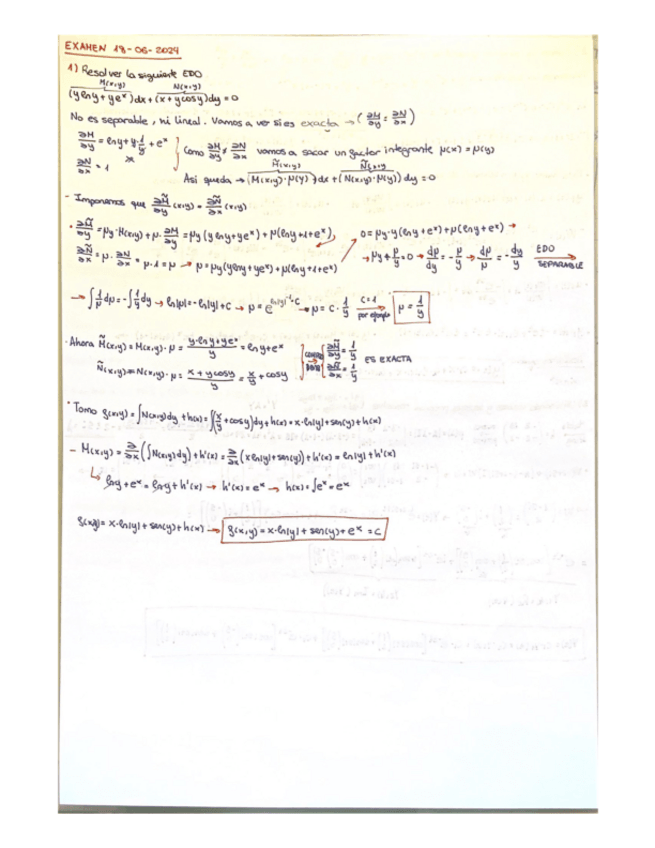 EXAMEN 18-06-2024
1) Resolver la siguiente EDO
M(x,y) N(x,y)
(y ln y + y e^x) dx + (x + y cos y) dy = 0
No es separable, ni lineal. Vamos a ver si es exacta → (∂M/∂y = ∂N/∂x)
∂M/∂y = ln y + y · 1/y + e^x
∂N/∂x = 1
Como ∂M/∂y ≠ ∂N/∂x vamos a sacar un factor integrante μ(x) = μ(y)
M̃(x,y) Ñ(x,y)
Así queda → (M(x,y)·μ(y)) dx + (N(x,y)·μ(y)) dy = 0
- Imponemos que ∂M̃/∂y (x,y) = ∂Ñ/∂x (x,y)
· ∂M̃/∂y = μy · M(x,y) + μ · ∂M/∂y = μy (y ln y + y e^x) + μ(ln y + 1 + e^x)
∂Ñ/∂x = μ · ∂N/∂x = μ · 1 = μ → μ = μy (y ln y + y e^x) + μ(ln y + 1 + e^x)
0 = μy · y (ln y + e^x) + μ(ln y + e^x) →
→ μy + μ/y = 0 → dμ/dy = - μ/y → dμ/μ = - dy/y EDO SEPARABLE
→ ∫ 1/μ dμ = - ∫ 1/y dy → ln|μ| = - ln|y| + C → μ = e^(ln|y|^-1 · C) → μ = C · 1/y C=1 por ejemplo → μ = 1/y
· Ahora M̃(x,y) = M(x,y) · μ = (y · ln y + y e^x)/y = ln y + e^x
Ñ(x,y) = N(x,y) · μ = (x + y cos y)/y = x/y + cos y
∂M̃/∂y = 1/y
∂Ñ/∂x = 1/y
ES EXACTA
· Tomo f(x,y) = ∫ N(x,y) dy + h(x) = ∫(x/y + cos y) dy + h(x) = x · ln|y| + sen(y) + h(x)
- M(x,y) = ∂/∂x (∫ N(x,y) dy) + h'(x) = ∂/∂x (x ln|y| + sen(y)) + h'(x) = ln|y| + h'(x)
↳ ln y + e^x = ln y + h'(x) → h'(x) = e^x → h(x) = ∫ e^x = e^x
f(x,y) = x · ln|y| + sen(y) + h(x) → f(x,y) = x · ln|y| + sen(y) + e^x = C